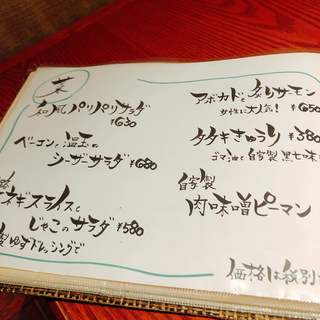 菜
和風パリパリサラダ
¥630
ベーコンと温玉の
シーザーサラダ ¥680
ネギスライスと
じゃこのサラダ ¥580
製ゆずドレッシングで
アボカドと炙りサーモン
女性に大人気! ¥650
タタキきゅうり ¥380
ゴマ油と自家製黒七味
自家製
肉味噌ピーマン
価格は税別